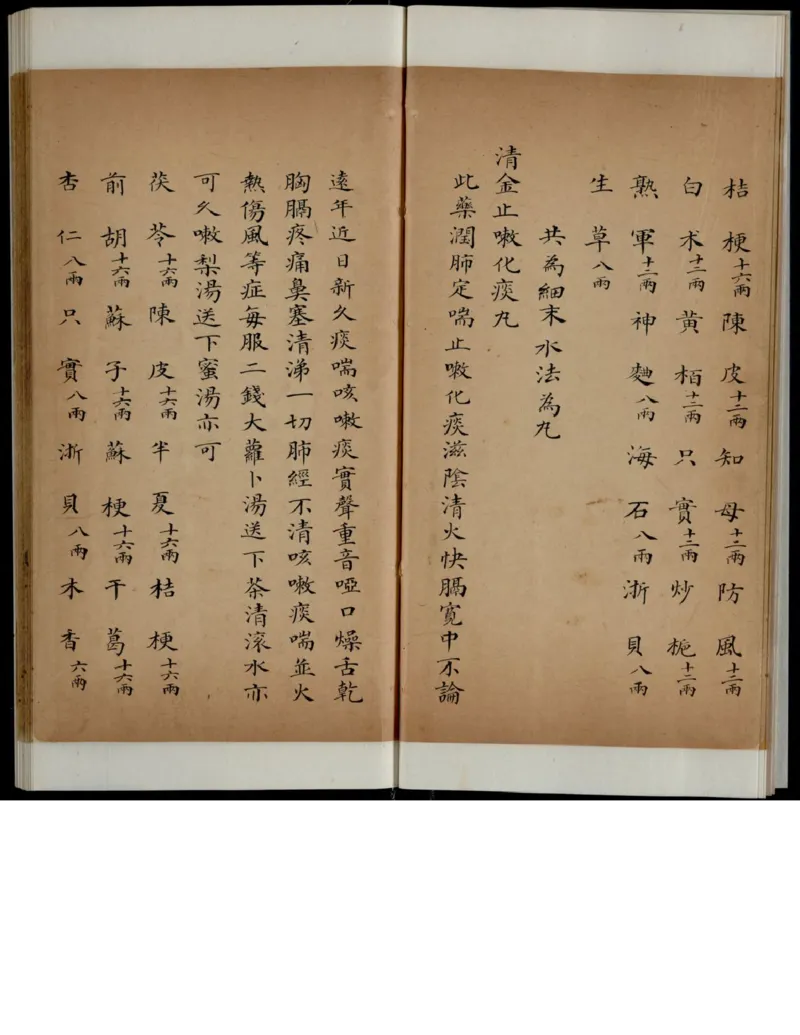 桔梗十六兩陳皮十二兩知母十二兩防風十二兩
白朮十二兩黃栢十二兩只實十二兩炒梔十二兩
熟軍十二兩神麯八兩海石八兩浙貝八兩
生草八兩
共為細末水法為丸
清金止嗽化痰丸
此藥潤肺定喘止嗽化痰滋陰清火快膈寬中不論
遠年近日新久痰喘咳嗽痰實聲重音啞口燥舌乾
胸膈疼痛鼻塞清涕一切肺經不清咳嗽痰喘並火
熱傷風等症每服二錢大蘿卜湯送下茶清滾水亦
可久嗽梨湯送下蜜湯亦可
茯苓十六兩陳皮十六兩半夏十六兩桔梗十六兩
前胡十六兩蘇子十六兩蘇梗十六兩干葛十六兩
杏仁八兩只實八兩浙貝八兩木香六兩